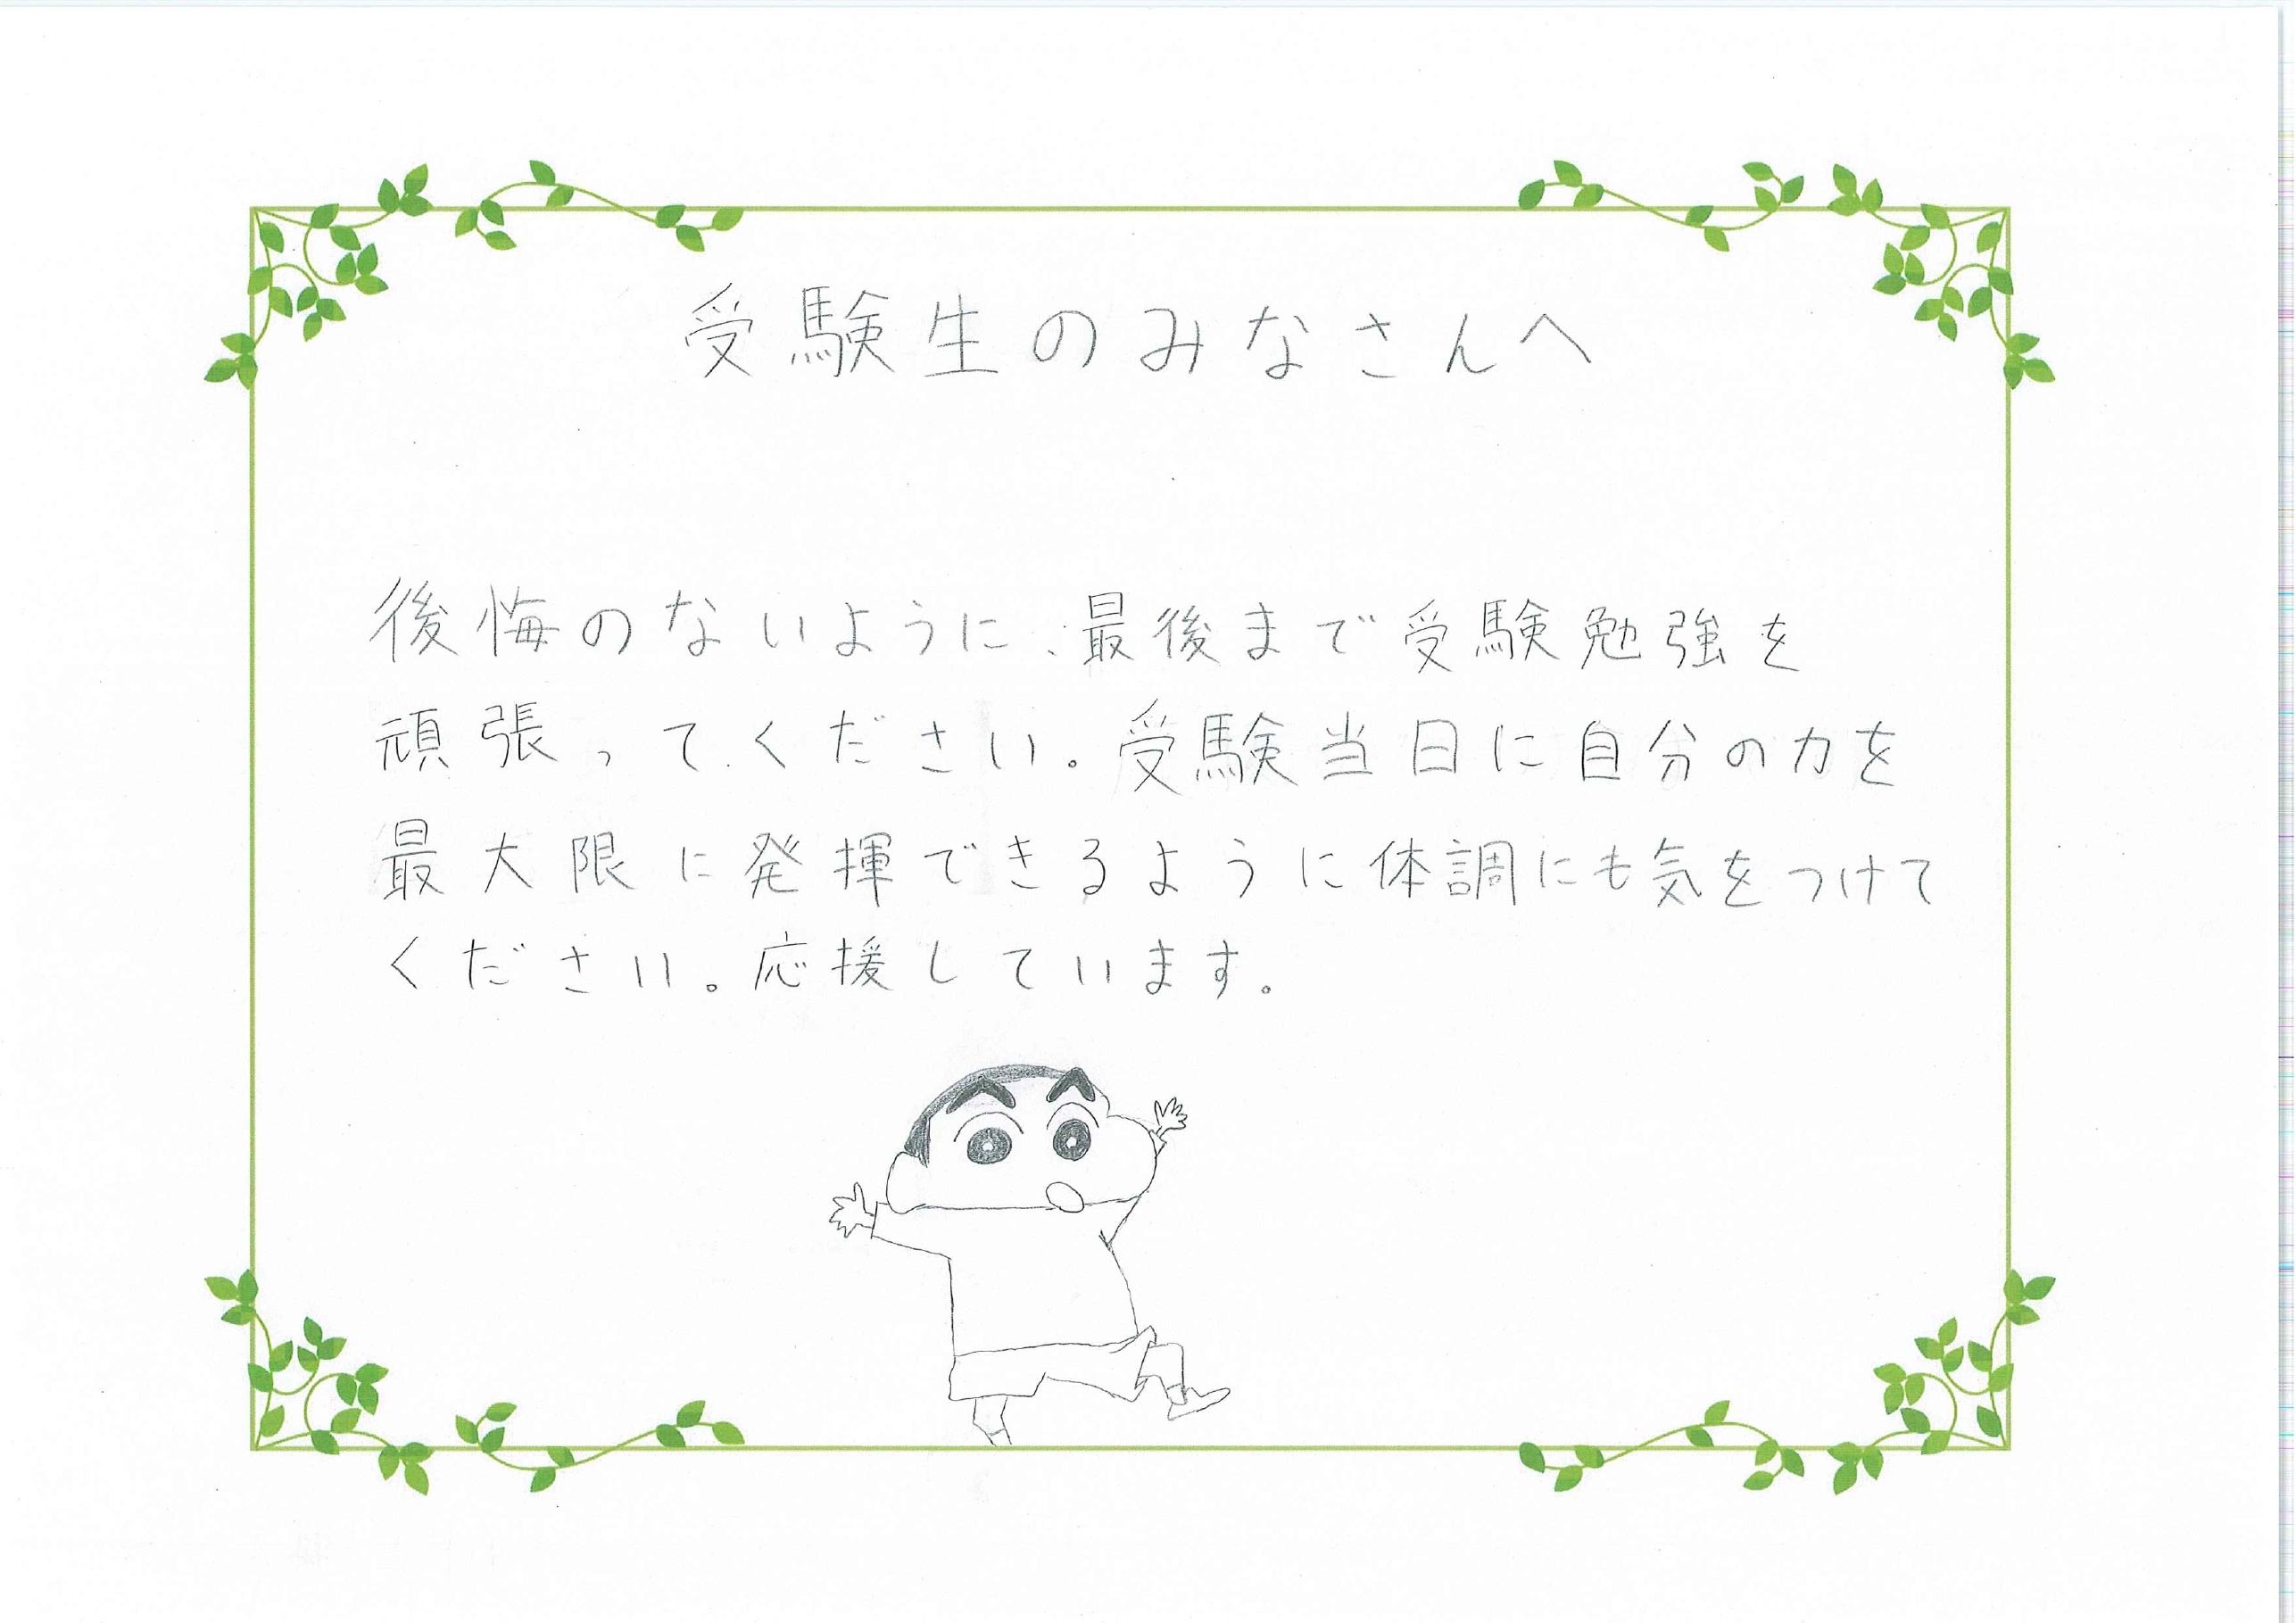 受験生のみなさんへ
後悔のないように、最後まで受験勉強を
頑張ってください。受験当日に自分の力を
最大限に発揮できるように体調にも気をつけて
ください。応援しています。